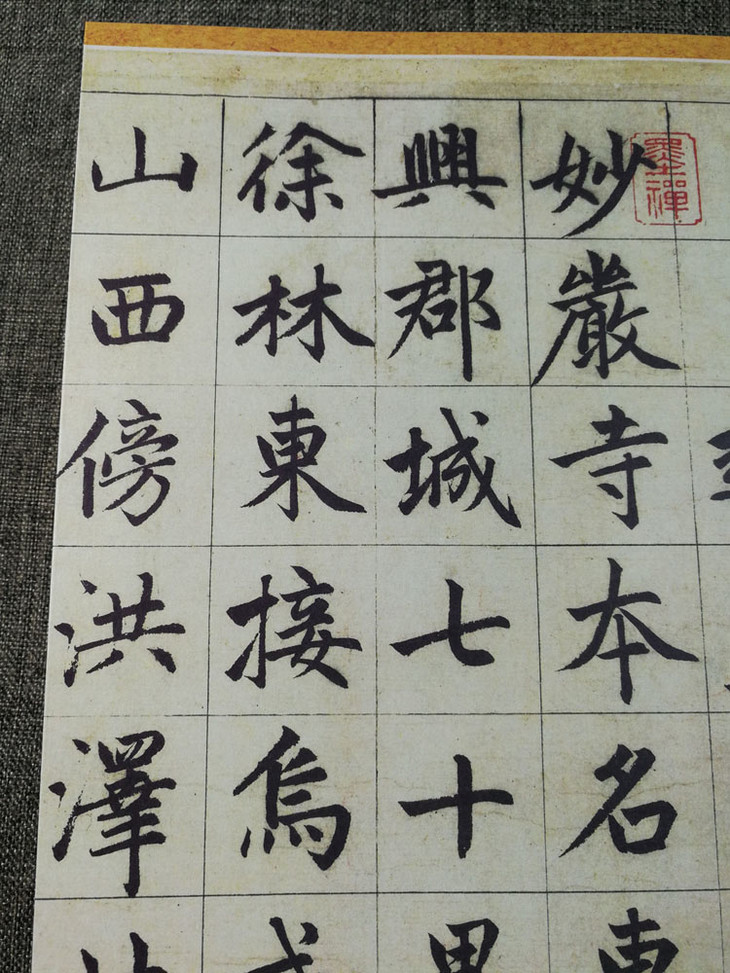 墨禪
妙嚴寺本名東
興郡城七十里
徐林東接烏
山西傍洪澤